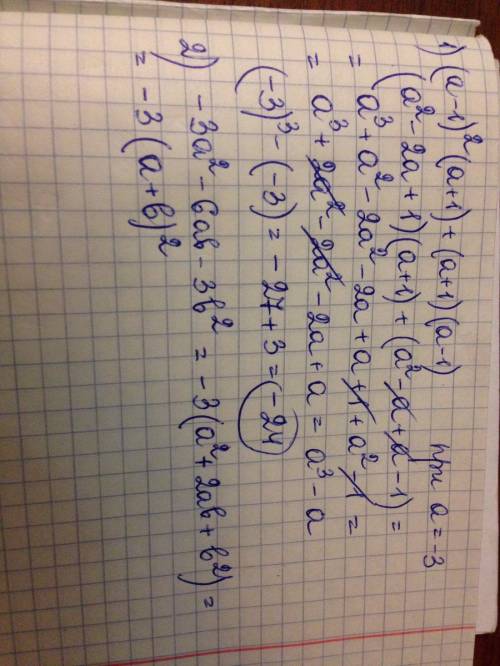 1) (a-1)² (a+1) + (a+1) (a-1) при a = -3
(a² - 2a + 1)(a+1) + (a² - a + a - 1) =
= a³ + a² - 2a² - 2a + a + 1 + a² - 1 =
= a³ + 2a² - 2a² - 2a + a = a³ - a
(-3)³ - (-3) = -27 + 3 = -24
2) -3a² - 6ab - 3b² = -3(a² + 2ab + b²) =
= -3(a+b)²